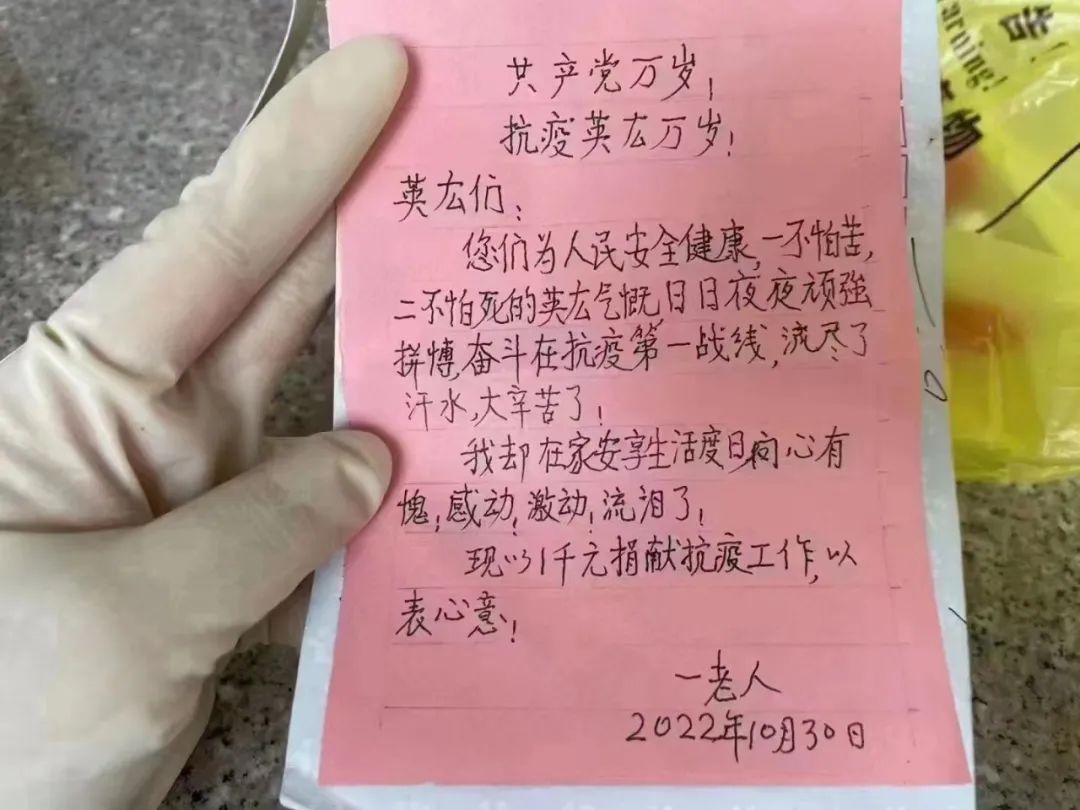 共产党万岁!
抗疫英厷万岁!
英厷们:
您们为人民安全健康,一不怕苦,
二不怕死的英厷气慨,日日夜夜顽强
拼愽,奋斗在抗疫第一战线,流尽了
汗水,大辛苦了!
我却在家安享生活度日,问心有
愧!感动!激动!流泪了!
现以1千元捐献抗疫工作,以
表心意!
一老人
2022年10月30日
告
arning!
物